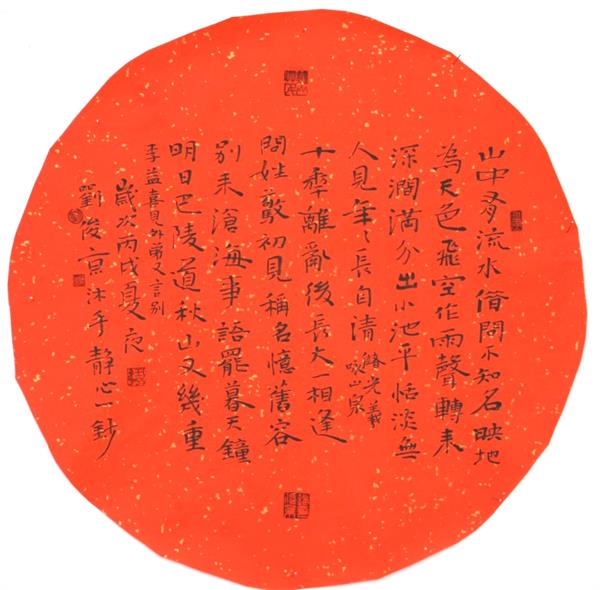 山中有流水借問不知名映地
為天色飛空作雨聲轉来
深澗滿分出小池平恬淡無
人見年々長自清
儲光羲
咏山泉
十年離亂後長大一相逢
問姓驚初見稱名憶舊容
別来滄海事語罷暮天鐘
明日巴陵道秋山又幾重
李益喜見外弟又言別
歲次丙戌夏夜
劉俊京沐手靜心一鈔